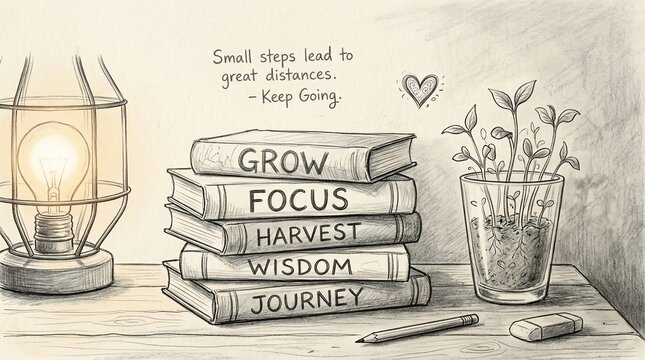 Small steps lead to
great distances.
– Keep Going.
GROW
FOCUS
HARVEST
WISDOM
JOURNEY